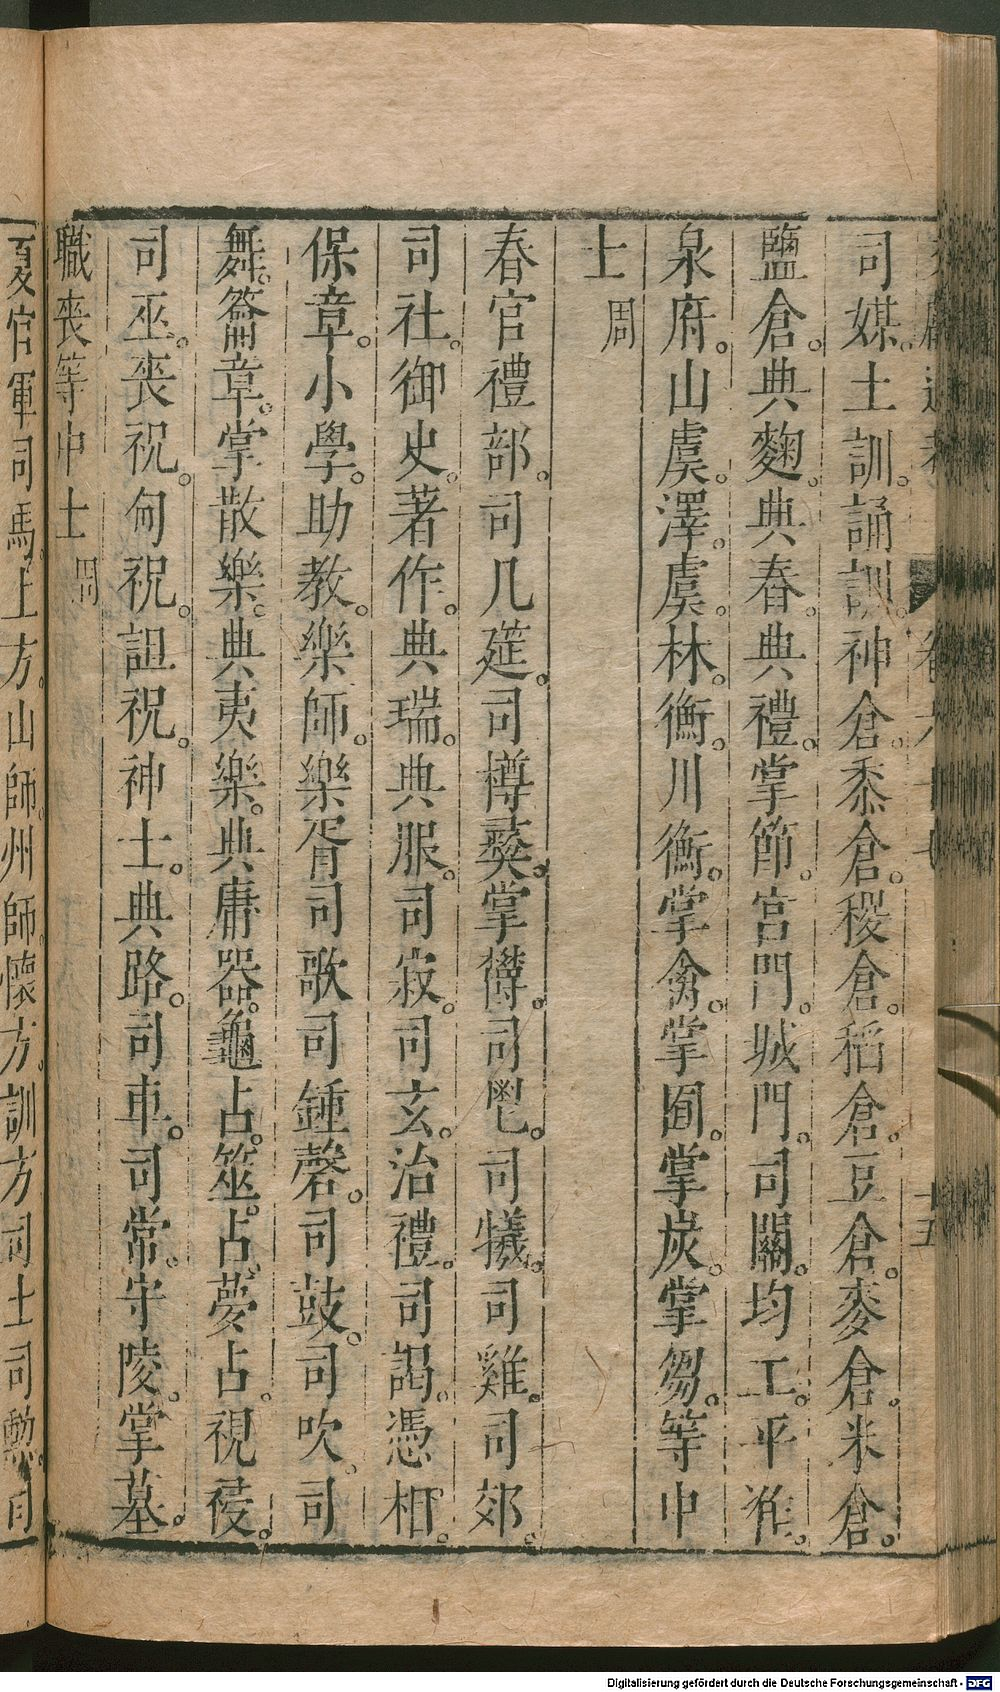 卷六十七
十五
司媒。土訓。誦訓。神倉。黍倉。稷倉。稻倉。豆倉。麥倉。米倉。
鹽倉。典麴。典舂。典禮。掌節。宮門。城門。司關。均工。平准。
泉府。山虞。澤虞。林衡。川衡。掌禽。掌囿。掌炭。掌芻。等中
士周
春官禮部。司几筵。司樽彝。掌鬱。司鬯。司犧。司雞。司郊。
司社。御史。著作。典瑞。典服。司寂。司玄。治禮。司謁。憑相。
保章。小學。助教。樂師。樂胥司歌司鍾磬。司鼓。司吹。司
舞。籥章。掌散樂。典夷樂。典庸器。龜占。筮占。夢占。視祲。
司巫。喪祝。甸祝。詛祝。神士。典路。司車。司常。守陵。掌墓。
職喪等中士周
夏官軍司馬。上方。山師。州師。懷方。訓方司士司勳。司
Digitalisierung gefördert durch die Deutsche Forschungsgemeinschaft - DFG